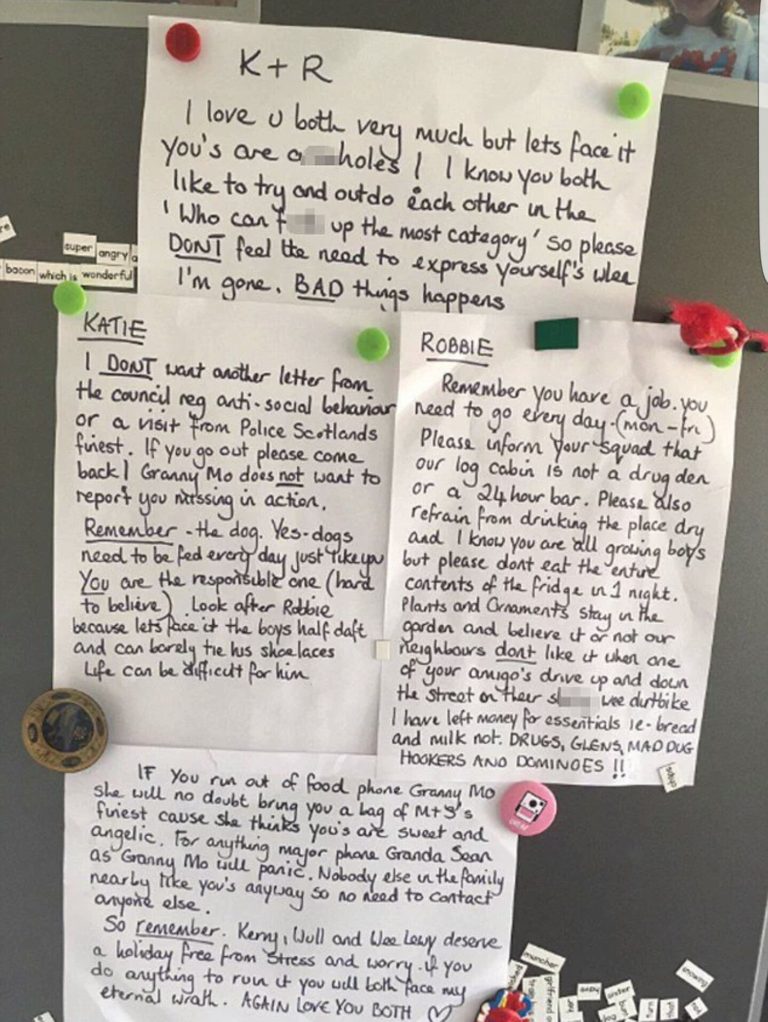 K + R
I love u both very much but lets face it
you's are a holes! I know you both
like to try and outdo each other in the
'Who can f up the most category' so please
DONT feel the need to express yourself's when
I'm gone. BAD things happens
super angry a
bacon which is wonderful
KATIE
I DONT want another letter from
the council reg anti-social behaviour
or a visit from Police Scotlands
finest. If you go out please come
back! Granny Mo does not want to
report you missing in action.
Remember - the dog. Yes - dogs
need to be fed every day just like you
You are the responsible one (hard
to believe). Look after Robbie
because lets face it the boys half daft
and can barely tie his shoelaces
Life can be difficult for him
ROBBIE
Remember you have a job. you
need to go every day - (mon - fri)
Please inform your squad that
our log cabin is not a drug den
or a 24 hour bar. Please also
refrain from drinking the place dry
and I know you are all growing boys
but please dont eat the entire
contents of the fridge in 1 night.
Plants and Ornaments stay in the
garden and believe it or not our
neighbours dont like it when one
of your amigo's drive up and down
the street on their s wee durtbike
I have left money for essentials ie - bread
and milk not. DRUGS, GLENS, MAD DUG
HOOKERS AND DOMINOES !!
IF you run out of food phone Granny Mo
she will no doubt bring you a bag of M+S's
finest cause she thinks you's are sweet and
angelic. For anything major phone Granda Sean
as Granny Mo will panic. Nobody else in the family
nearby like you's anyway so no need to contact
anyone else.
So remember. Kerry, Wull and Wee Lewy deserve
a holiday free from stress and worry. if you
do anything to ruin it you will both face my
eternal wrath. AGAIN LOVE YOU BOTH ♡
muncher
girlfriend
snowing
under